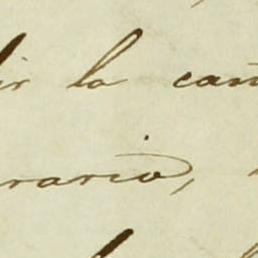 ir la can
rario,